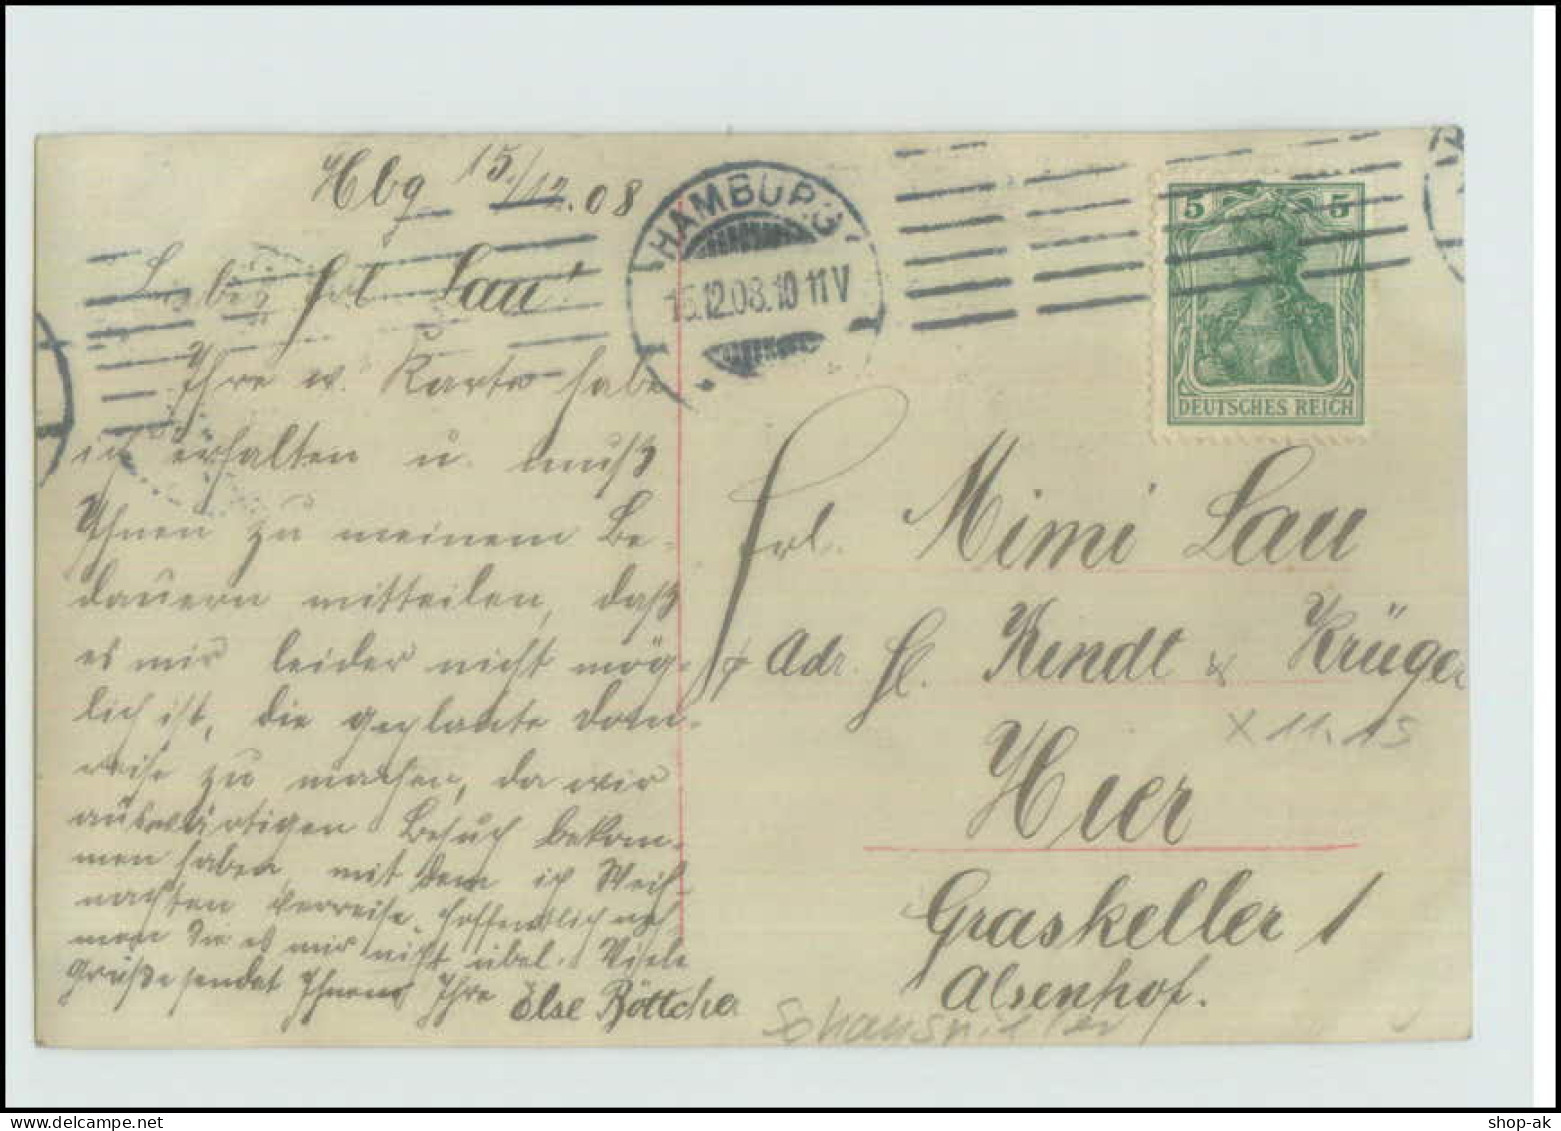 Hbg 15./12.08
Liebes Frl. Lau!
Ihre w. Karte habe
ich erhalten u. muß
Ihnen zu meinem Be-
dauern mitteilen, daß
es mir leider nicht mög-
lich ist, die geplante Dom-
reise zu machen, da wir
auswärtigen Besuch bekom-
men haben, mit dem ich Weih-
nachten verreise. Hoffentlich neh-
men Sie es mir nicht übel. Viele
Grüße sendet Ihnen Ihre Else Böttcher
HAMBURG
15.12.08.10-11V
5 5
DEUTSCHES REICH
Frl. Mimi Lau
p Adr. H. Kendt & Krüger
X 11.15
Hier
Graskeller 1
Alsenhof.
Schauspieler
shop-ak